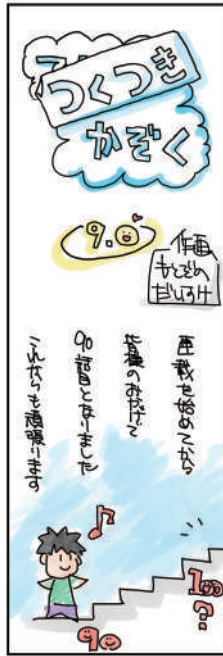 つくつき
かぞく
9.0
作画
もとぞの
だいすけ
連載を始めてから
皆様のおかげで
90話目となりました
これからも頑張ります
90
100
?